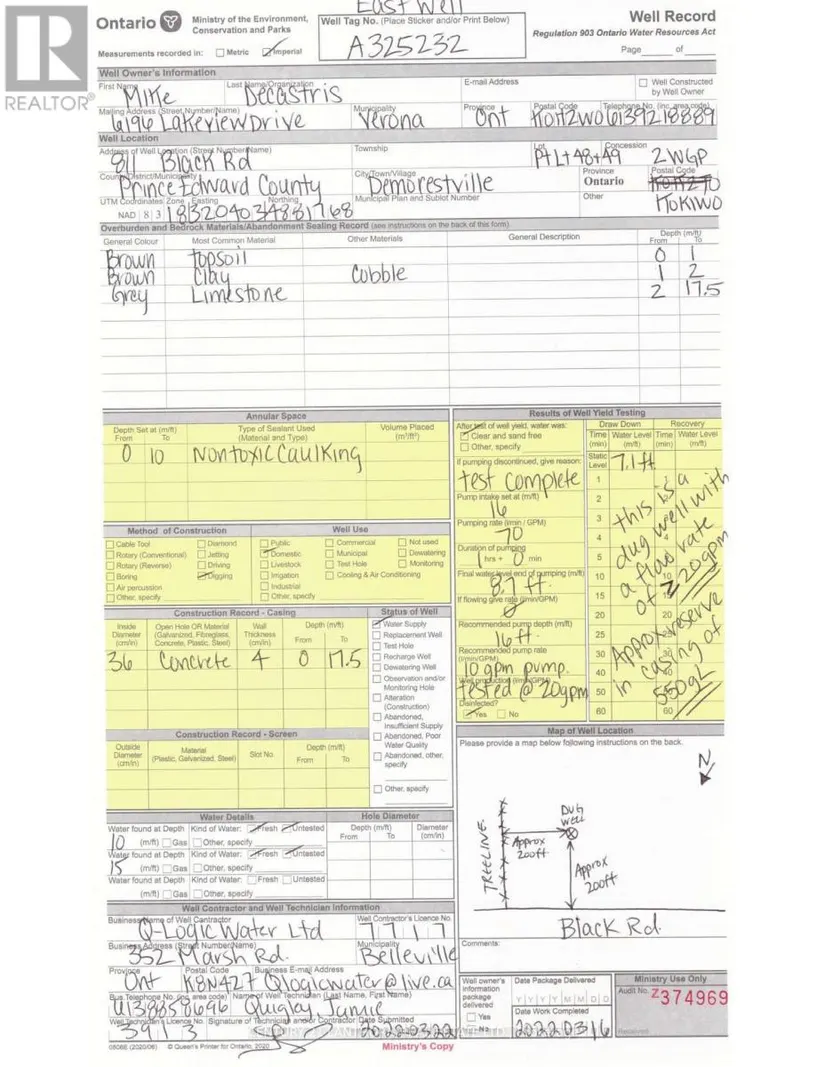 East Well
Ontario Ministry of the Environment, Conservation and Parks
Well Tag No. (Place Sticker and/or Print Below)
A325232
Well Record
Regulation 903 Ontario Water Resources Act
Measurements recorded in: Metric Imperial
Page of
REALTOR®
Well Owner's Information
First Name Last Name/Organization E-mail Address Well Constructed by Well Owner
Mike Decastris
Mailing Address (Street Number/Name) Municipality Province Postal Code Telephone No. (inc. area code)
6196 Lakeview Drive Verona Ont K0H2W0 6139218889
Well Location
Address of Well Location (Street Number/Name) Township Lot Concession
811 Black Rd Pt Lt 48+49 2WGP
County/District/Municipality City/Town/Village Province Postal Code
Prince Edward County Demorestville Ontario
UTM Coordinates Zone Easting Northing Municipal Plan and Sublot Number Other
NAD 83 183204034881768 K0K1W0
Overburden and Bedrock Materials/Abandonment Sealing Record (see instructions on the back of this form)
General Colour Most Common Material Other Materials General Description Depth (m/ft) From To
Brown topsoil 0 1
Brown Clay Cobble 1 2
Grey Limestone 2 17.5
Annular Space
Depth Set at (m/ft) From To Type of Sealant Used (Material and Type) Volume Placed (m³/ft³)
0 10 Nontoxic Caulking
Method of Construction Well Use
Cable Tool Diamond Public Commercial Not used
Rotary (Conventional) Jetting Domestic Municipal Dewatering
Rotary (Reverse) Driving Livestock Test Hole Monitoring
Boring Digging Irrigation Cooling & Air Conditioning
Air percussion Industrial
Other, specify Other, specify
Construction Record - Casing
Inside Diameter (cm/in) Open Hole OR Material (Galvanized, Fibreglass, Concrete, Plastic, Steel) Wall Thickness (cm/in) Depth (m/ft) From To
36 Concrete 4 0 17.5
Status of Well
Water Supply
Replacement Well
Test Hole
Recharge Well
Dewatering Well
Observation and/or Monitoring Hole
Alteration (Construction)
Abandoned, Insufficient Supply
Abandoned, Poor Water Quality
Abandoned, other, specify
Other, specify
Construction Record - Screen
Outside Diameter (cm/in) Material (Plastic, Galvanized, Steel) Slot No. Depth (m/ft) From To
Water Details
Water found at Depth Kind of Water: Fresh Untested
10 (m/ft) Gas Other, specify
Water found at Depth Kind of Water: Fresh Untested
15 (m/ft) Gas Other, specify
Water found at Depth Kind of Water: Fresh Untested
(m/ft) Gas Other, specify
Hole Diameter
Depth (m/ft) From To Diameter (cm/in)
Results of Well Yield Testing
After test of well yield, water was:
Clear and sand free
Other, specify
If pumping discontinued, give reason:
test complete
Pump intake set at (m/ft)
16
Pumping rate (l/min / GPM)
70
Duration of pumping
1 hrs + 0 min
Final water level end of pumping (m/ft)
8.7 ft.
If flowing give rate (l/min/GPM)
Recommended pump depth (m/ft)
16 ft.
Recommended pump rate (l/min/GPM)
10 gpm pump.
Well production (l/min/GPM)
tested @ 20gpm
Disinfected?
Yes No
Draw Down Recovery
Time (min) Water Level (m/ft) Time (min) Water Level (m/ft)
Static Level 7.1 ft
1
2
3
4
5
10 10
15
20 20
25
30 30
40 40
50
60 60
this is a dug well with a flow rate of ≥ 20gpm
Approx reserve in casing of 550gL
Map of Well Location
Please provide a map below following instructions on the back.
N
TREELINE
Dug Well
Approx 200ft
Approx 200ft
Black Rd.
Comments:
Well Contractor and Well Technician Information
Business Name of Well Contractor Well Contractor's Licence No.
Q-Logic Water Ltd 7717
Business Address (Street Number/Name) Municipality
352 Marsh Rd. Belleville
Province Postal Code Business E-mail Address
Ont K8N4Z7 Qlogicwater@live.ca
Bus. Telephone No. (inc. area code) Name of Well Technician (Last Name, First Name)
6138858696 Quigley, Jamie
Well Technician's Licence No. Signature of Technician and/or Contractor Date Submitted
3911 3 20220322
Well owner's information package delivered
Yes
No
Date Package Delivered
Y Y Y Y M M D D
Date Work Completed
20220316
Ministry Use Only
Audit No. Z374969
Received
0506E (2020/06) © Queen's Printer for Ontario, 2020
Ministry's Copy